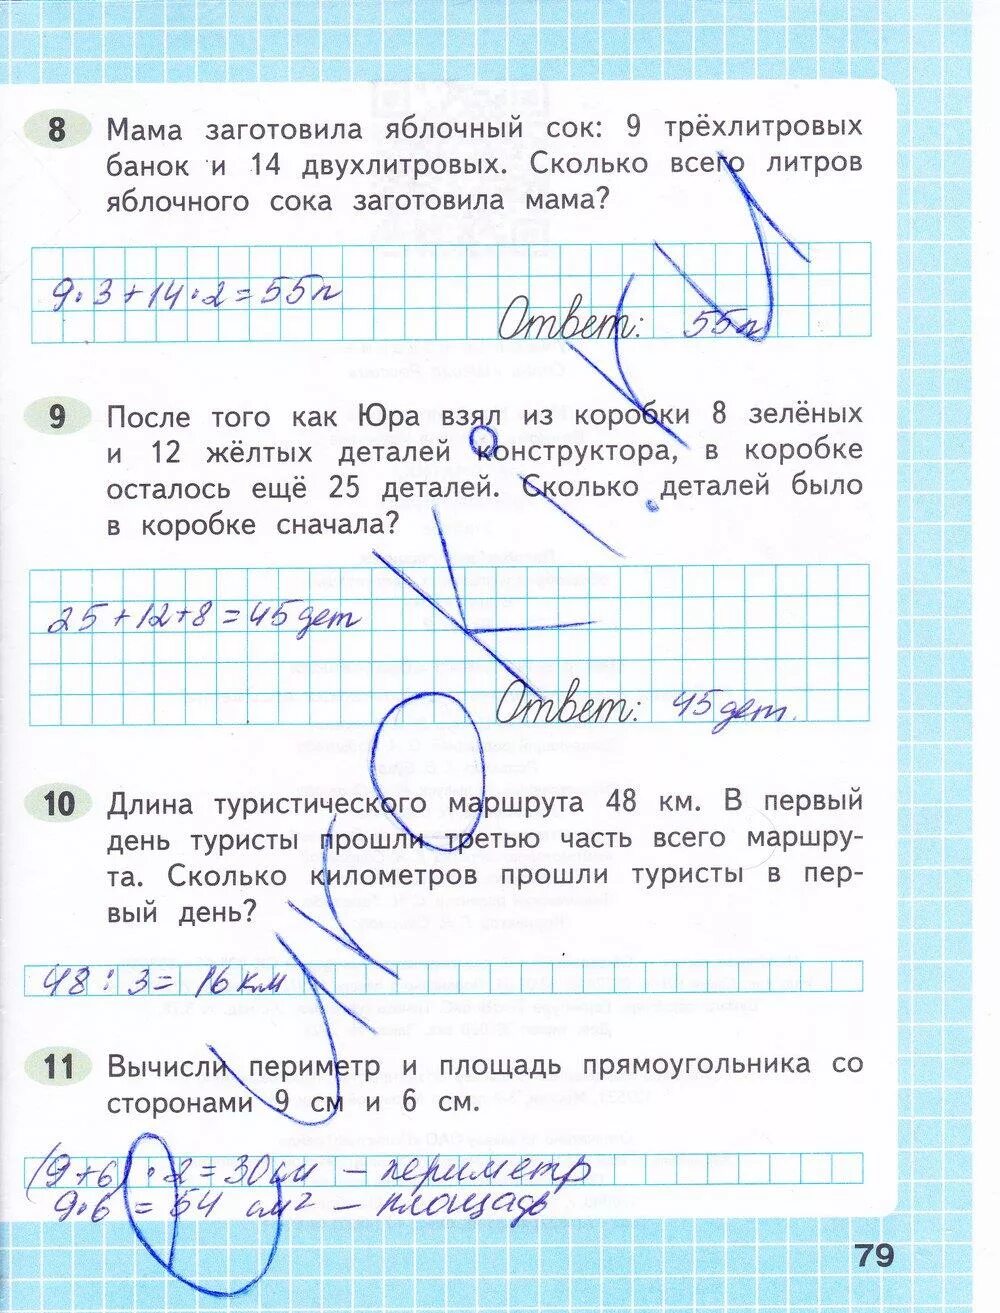 8 Мама заготовила яблочный сок: 9 трёхлитровых
банок и 14 двухлитровых. Сколько всего литров
яблочного сока заготовила мама?
9·3+14·2=55л
Ответ: 55л
9 После того как Юра взял из коробки 8 зелёных
и 12 жёлтых деталей конструктора, в коробке
осталось ещё 25 деталей. Сколько деталей было
в коробке сначала?
25+12+8=45дет
Ответ: 45дет.
10 Длина туристического маршрута 48 км. В первый
день туристы прошли третью часть всего маршру-
та. Сколько километров прошли туристы в пер-
вый день?
48:3=16км
11 Вычисли периметр и площадь прямоугольника со
сторонами 9 см и 6 см.
(9+6)·2=30см – периметр
9·6=54 см² – площадь
79